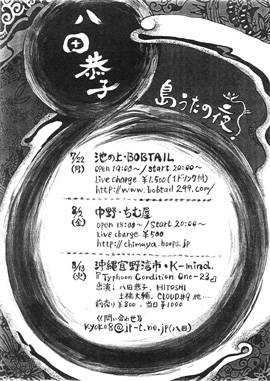 八田恭子
島うたの夜
7/22
(月)
池の上・BOBTAIL
open 19:00~/start 20:00~
Live charge ¥1,500 (1ドリンク付)
http://www.bobtail299.com/
8/2
(金)
中野・ちむ屋
open 18:00~/start 20:00~
Live charge ¥500
http://chimuya.hoops.jp
8/13
(火)
沖縄宜野湾市・K-mind.
『Typhoon Condition One-23』
出演: 八田恭子、HITOSHI
土橋大輔、CLOUD.n9 他…
前売り¥800、当日¥1000
《問い合わせ》
kyoko8@jp-t.ne.jp(八田)